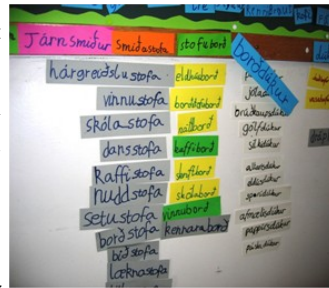 Járnsmiður smiðastofa stofuborð borðdúkur
hárgreiðslustofa
vinnustofa
skólastofa
dansstofa
kaffistofa
nuddstofa
setustofa
borðstofa
biðstofa
læknastofa
eldhúsborð
náttborð
kaffiborð
skrifborð
skólaborð
vinnuborð
kennaraborð
jóla
brúðkaupsdúkur
gólfdúkur
silkidúkur
sparidúkur
afmælisdúkur
pappírsdúkur
páskadúkur